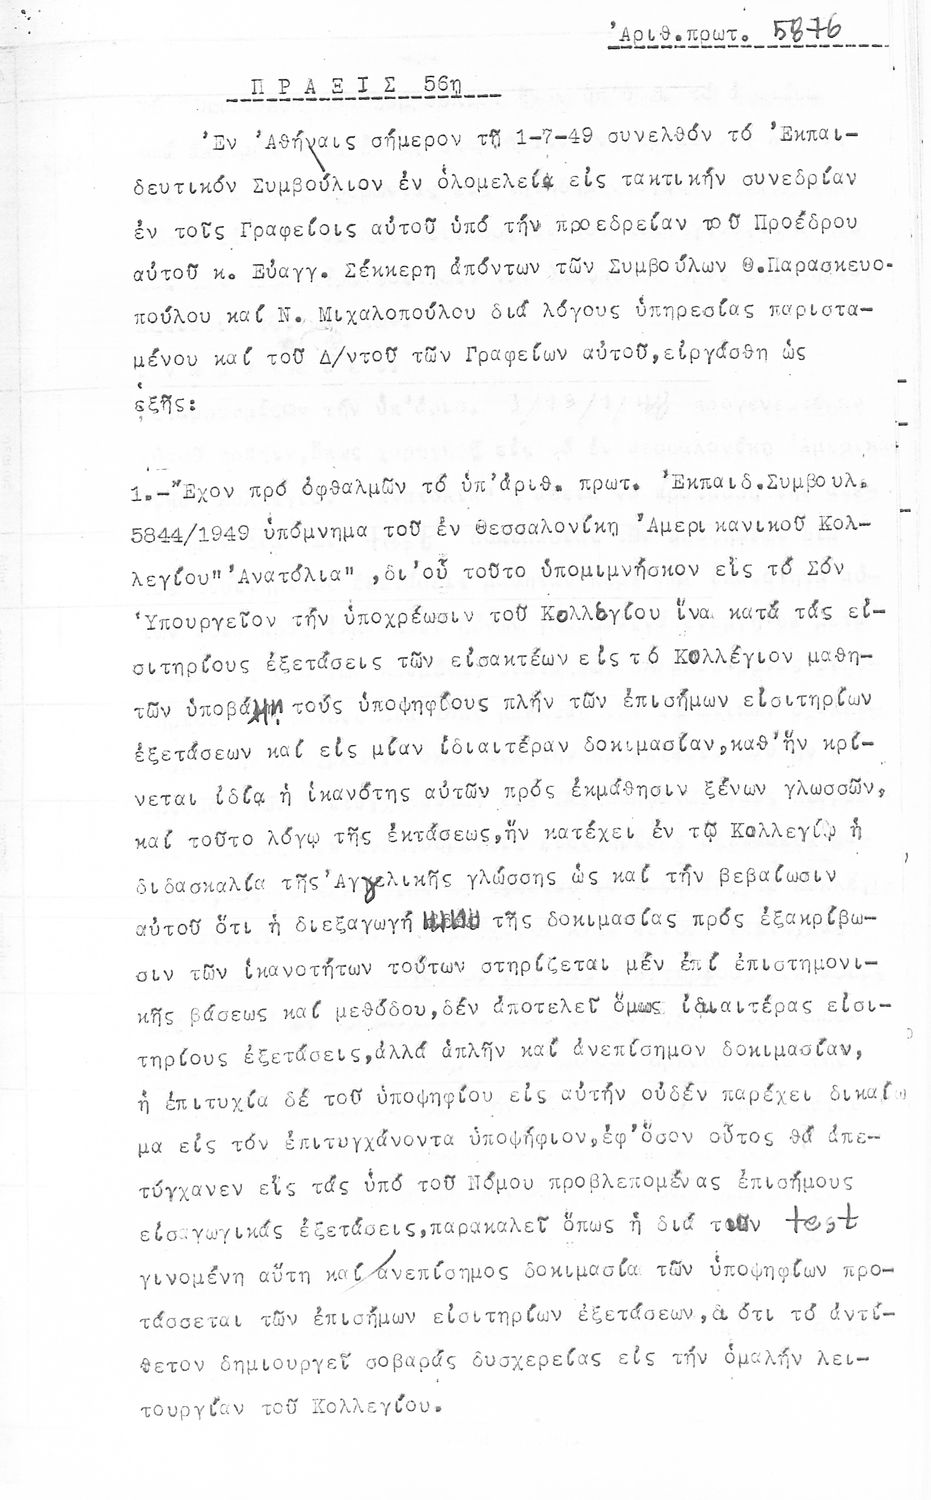 Ἀριθ.πρωτ. 5876
Π Ρ Α Ξ Ι Σ 56η
Ἐν Ἀθήναις σήμερον τῇ 1-7-49 συνελθόν τό Ἐκπαι-
δευτικόν Συμβούλιον ἐν ὁλομελείᾳ εἰς τακτικήν συνεδρίαν
ἐν τοῖς Γραφείοις αὐτοῦ ὑπό τήν προεδρείαν τοῦ Προέδρου
αὐτοῦ κ. Εὐαγγ. Σέκκερη ἀπόντων τῶν Συμβούλων Θ.Παρασκευο-
πούλου καί Ν. Μιχαλοπούλου διά λόγους ὑπηρεσίας παριστα-
μένου καί τοῦ Δ/ντοῦ τῶν Γραφείων αὐτοῦ,εἰργάσθη ὡς
ἑξῆς:
1.-Ἔχον πρό ὀφθαλμῶν τό ὑπ'ἀριθ. πρωτ. Ἐκπαιδ.Συμβουλ.
5844/1949 ὑπόμνημα τοῦ ἐν Θεσσαλονίκῃ Ἀμερικανικοῦ Κολ-
λεγίου"Ἀνατόλια",δι'οὗ τοῦτο ὑπομιμνήσκον εἰς τό Σόν
Ὑπουργεῖον τήν ὑποχρέωσιν τοῦ Κολλεγίου ἵνα κατά τάς εἰ-
σιτηρίους ἐξετάσεις τῶν εἰσακτέων εἰς τό Κολλέγιον μαθη-
τῶν ὑποβά τούς ὑποψηφίους πλήν τῶν ἐπισήμων εἰσιτηρίων
ἐξετάσεων καί εἰς μίαν ἰδιαιτέραν δοκιμασίαν,καθ'ἥν κρί-
νεται ἰδίᾳ ἡ ἱκανότης αὐτῶν πρός ἐκμάθησιν ξένων γλωσσῶν,
καί τοῦτο λόγῳ τῆς ἐκτάσεως,ἥν κατέχει ἐν τῷ Κολλεγίῳ ἡ
διδασκαλία τῆς Ἀγγελικῆς γλώσσης ὡς καί τήν βεβαίωσιν
αὐτοῦ ὅτι ἡ διεξαγωγή τῆς δοκιμασίας πρός ἐξακρίβω-
σιν τῶν ἱκανοτήτων τούτων στηρίζεται μέν ἐπί ἐπιστημονι-
κῆς βάσεως καί μεθόδου,δέν ἀποτελεῖ ὅμως ἰδιαιτέρας εἰσι-
τηρίους ἐξετάσεις,ἀλλά ἁπλῆν καί ἀνεπίσημον δοκιμασίαν,
ἡ ἐπιτυχία δέ τοῦ ὑποψηφίου εἰς αὐτήν οὐδέν παρέχει δικαίω
μα εἰς τόν ἐπιτυγχάνοντα ὑποψήφιον,ἐφ'ὅσον οὗτος θά ἀπε-
τύγχανεν εἰς τάς ὑπό τοῦ Νόμου προβλεπομένας ἐπισήμους
εἰσαγωγικάς ἐξετάσεις,παρακαλεῖ ὅπως ἡ διά τῶν test
γινομένη αὕτη καί ἀνεπίσημος δοκιμασία τῶν ὑποψηφίων προ-
τάσσεται τῶν ἐπισήμων εἰσιτηρίων ἐξετάσεων, ὅτι τό ἀντί-
θετον δημιουργεῖ σοβαράς δυσχερείας εἰς τήν ὁμαλήν λει-
τουργίαν τοῦ Κολλεγίου.